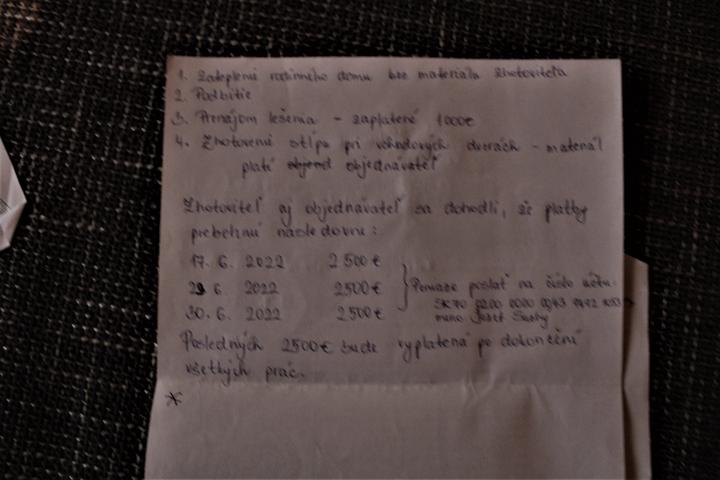 1. Zateplenie rodinného domu bez materialu zhotoviteľa
2. Podbitie
3. Prenájom lešenia - zaplatené 1000€
4. Zhotovenie stĺpu pri vchodových dverách - materiál
platí objednávateľ
Zhotoviteľ aj objednávateľ sa dohodli, že platby
prebehnú nasledovne:
17. 6. 2022 2500€
6. 2022 2500€
30. 6. 2022 2500€
Peniaze poslať na číslo účtu:
SK70 0200 0000 0043
meno Jozef
Posledných 2500€ bude vyplatená po dokončení
všetkých prác.
*